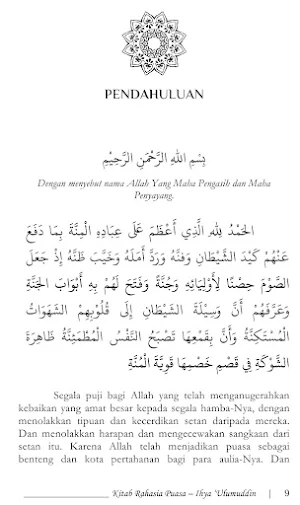 PENDAHULUAN
بِسْمِ اللهِ الرَّحْمَنِ الرَّحِيْمِ
Dengan menyebut nama Allah Yang Maha Pengasih dan Maha
Penyayang.
الحَمْدُ لِلهِ الَّذِي أَعْظَمَ عَلَى عِبَادِهِ الْمِنَّةَ بِمَا دَفَعَ
عَنْهُمْ كَيْدَ الشَّيْطَانِ وَفَنَّهُ وَرَدَّ أَمَلَهُ وَخَيَّبَ ظَنَّهُ إِذْ جَعَلَ
الصَّوْمَ حِصْنًا لِأَوْلِيَائِهِ وَجُنَّةً وَفَتَحَ لَهُمْ بِهِ أَبْوَابَ الجَنَّةِ
وَعَرَّفَهُمْ أَنَّ وَسِيْلَةَ الشَّيْطَانِ إِلَى قُلُوبِهِمْ الشَّهَوَاتُ
المُسْتَكِنَّةُ وَأَنَّ بِقَمْعِهَا تَصْبَحُ النَّفْسُ الْمُطْمَئِنَّةُ ظَاهِرَةَ
الشَّوْكَةِ فِي قَصْمِ خَصْمِهَا قَوِيَّةَ الْمُنَّةِ
Segala puji bagi Allah yang telah menganugerahkan
kebaikan yang amat besar kepada segala hamba-Nya, dengan
menolakkan tipuan dan kecerdikan setan daripada mereka.
Dan menolakkan harapan dan mengecewakan sangkaan dari
setan itu. Karena Allah telah menjadikan puasa sebagai
benteng dan kota pertahanan bagi para aulia-Nya. Dan
Kitab Rahasia Puasa – Ihya 'Ulumuddin | 9